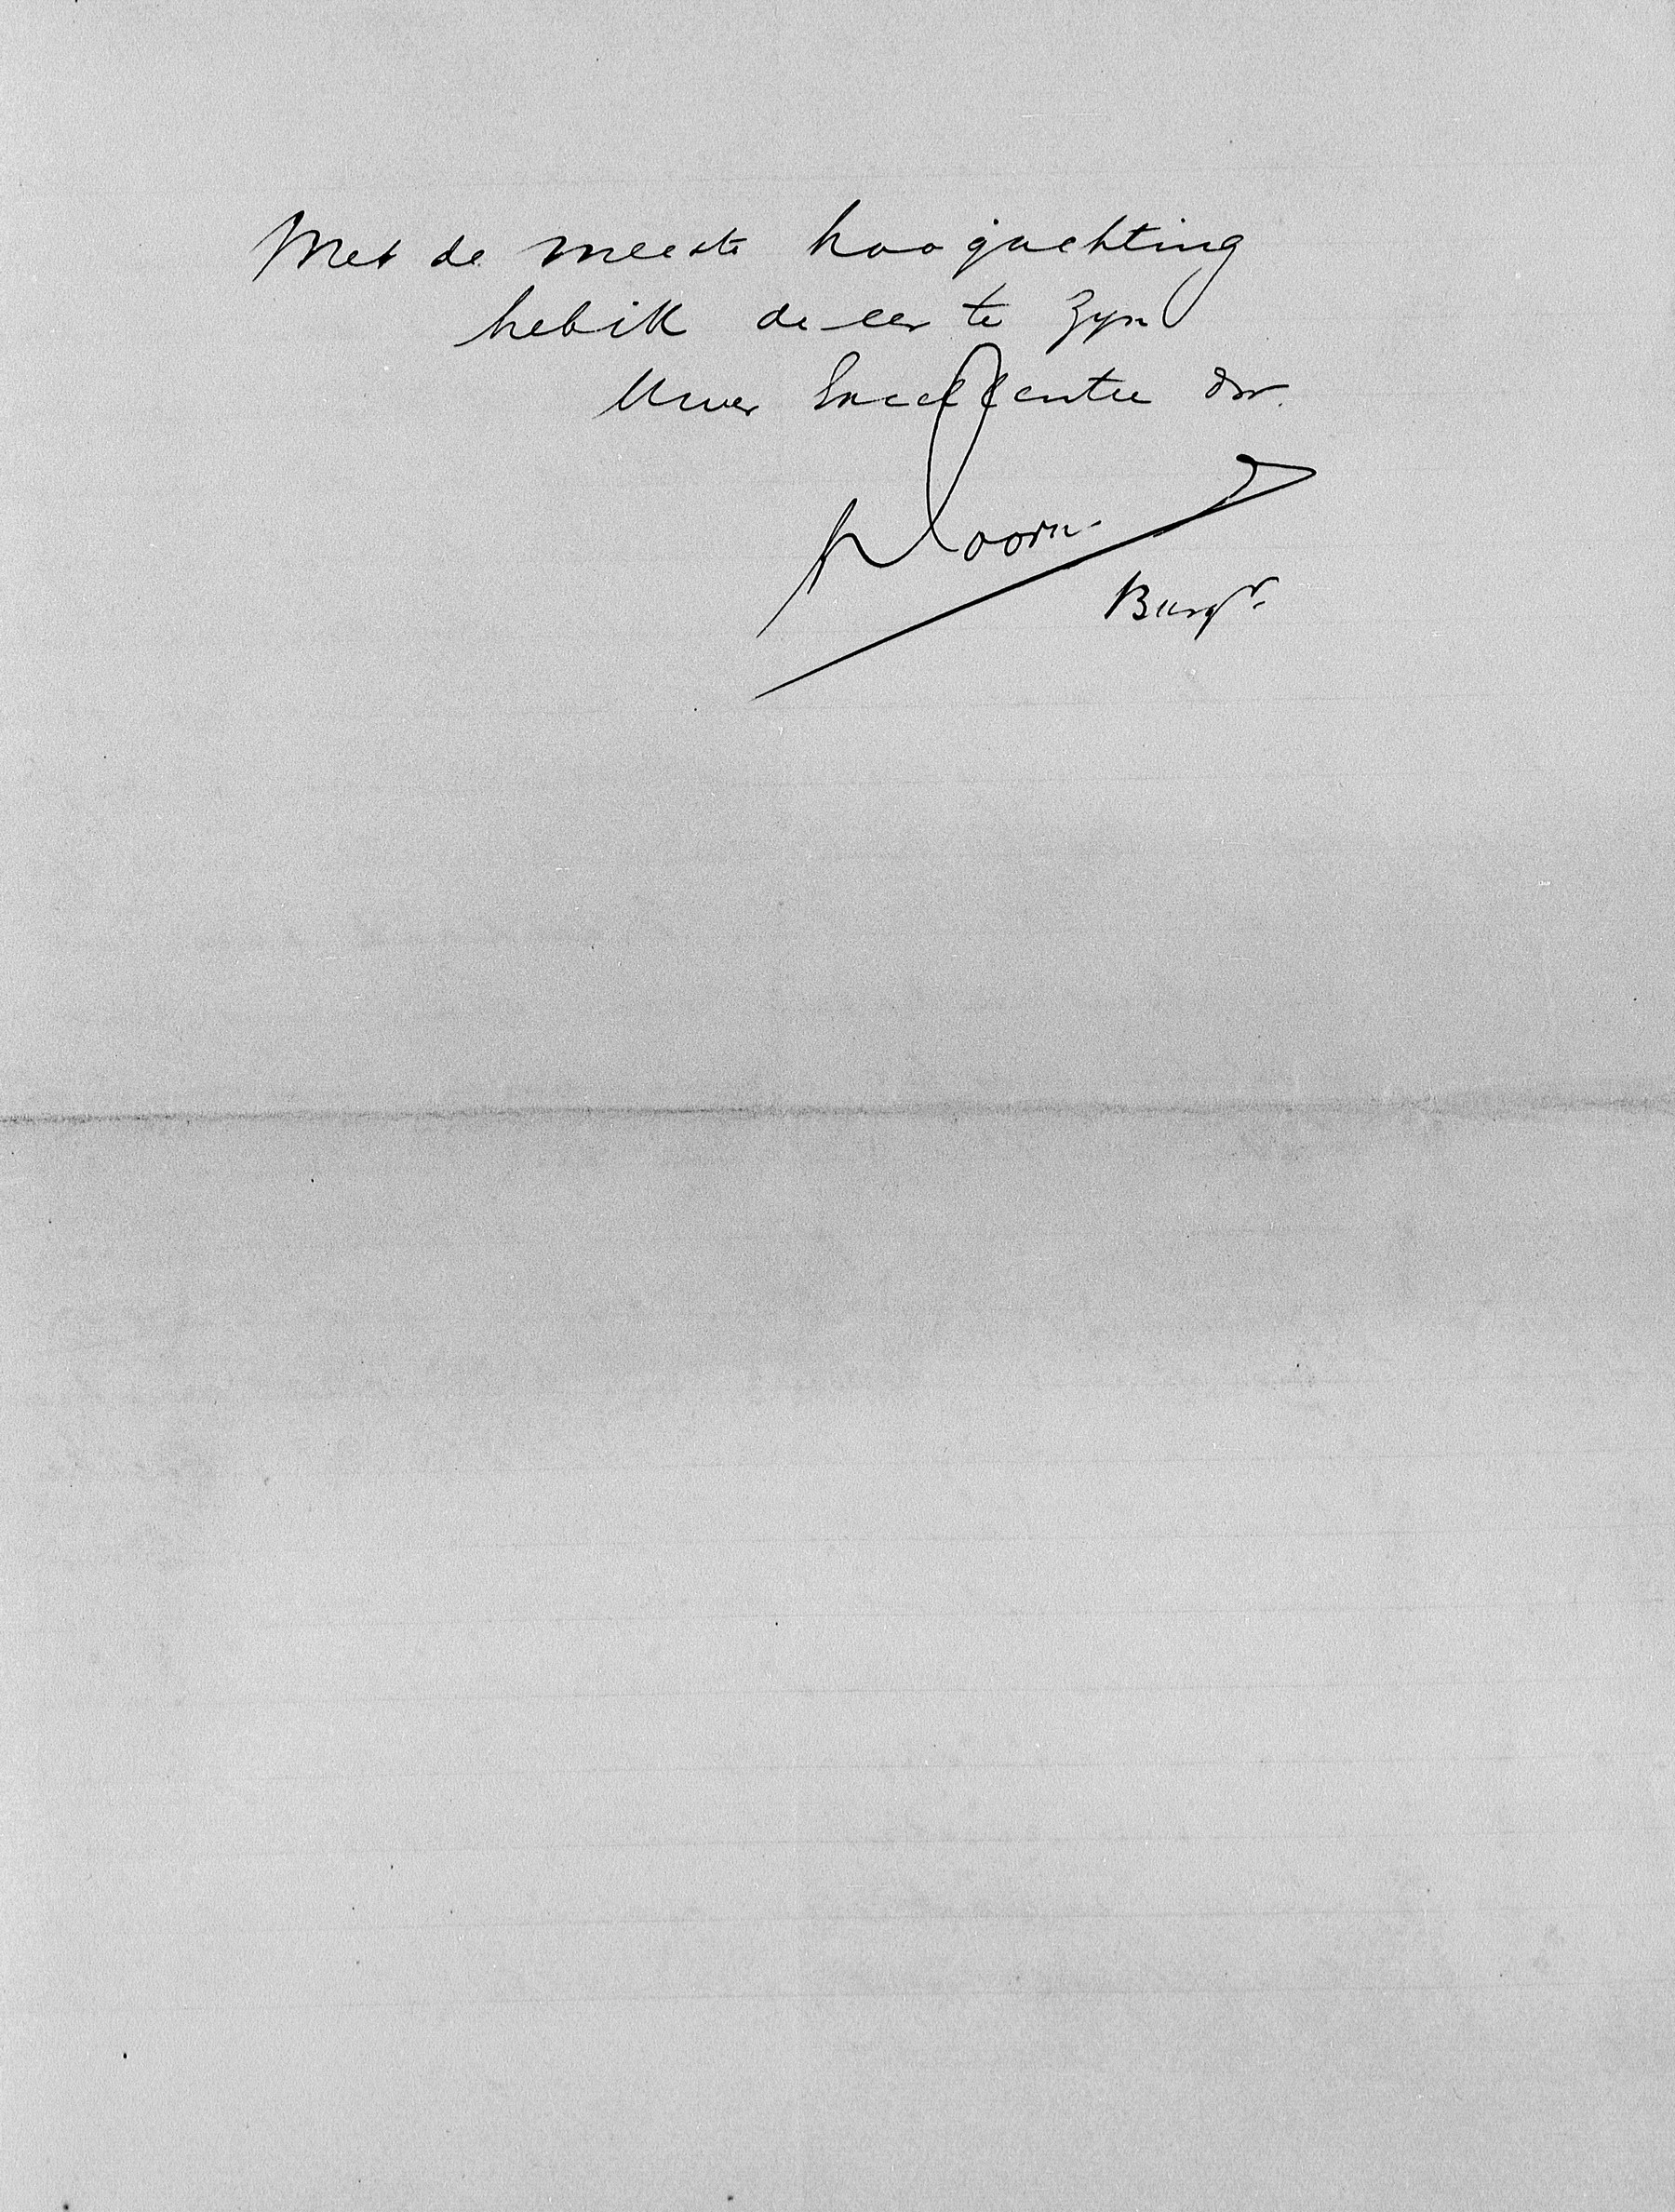 Met de meeste hoogachting
heb ik de eer te zyn
Uwer Excellentie dw.
Burgr.